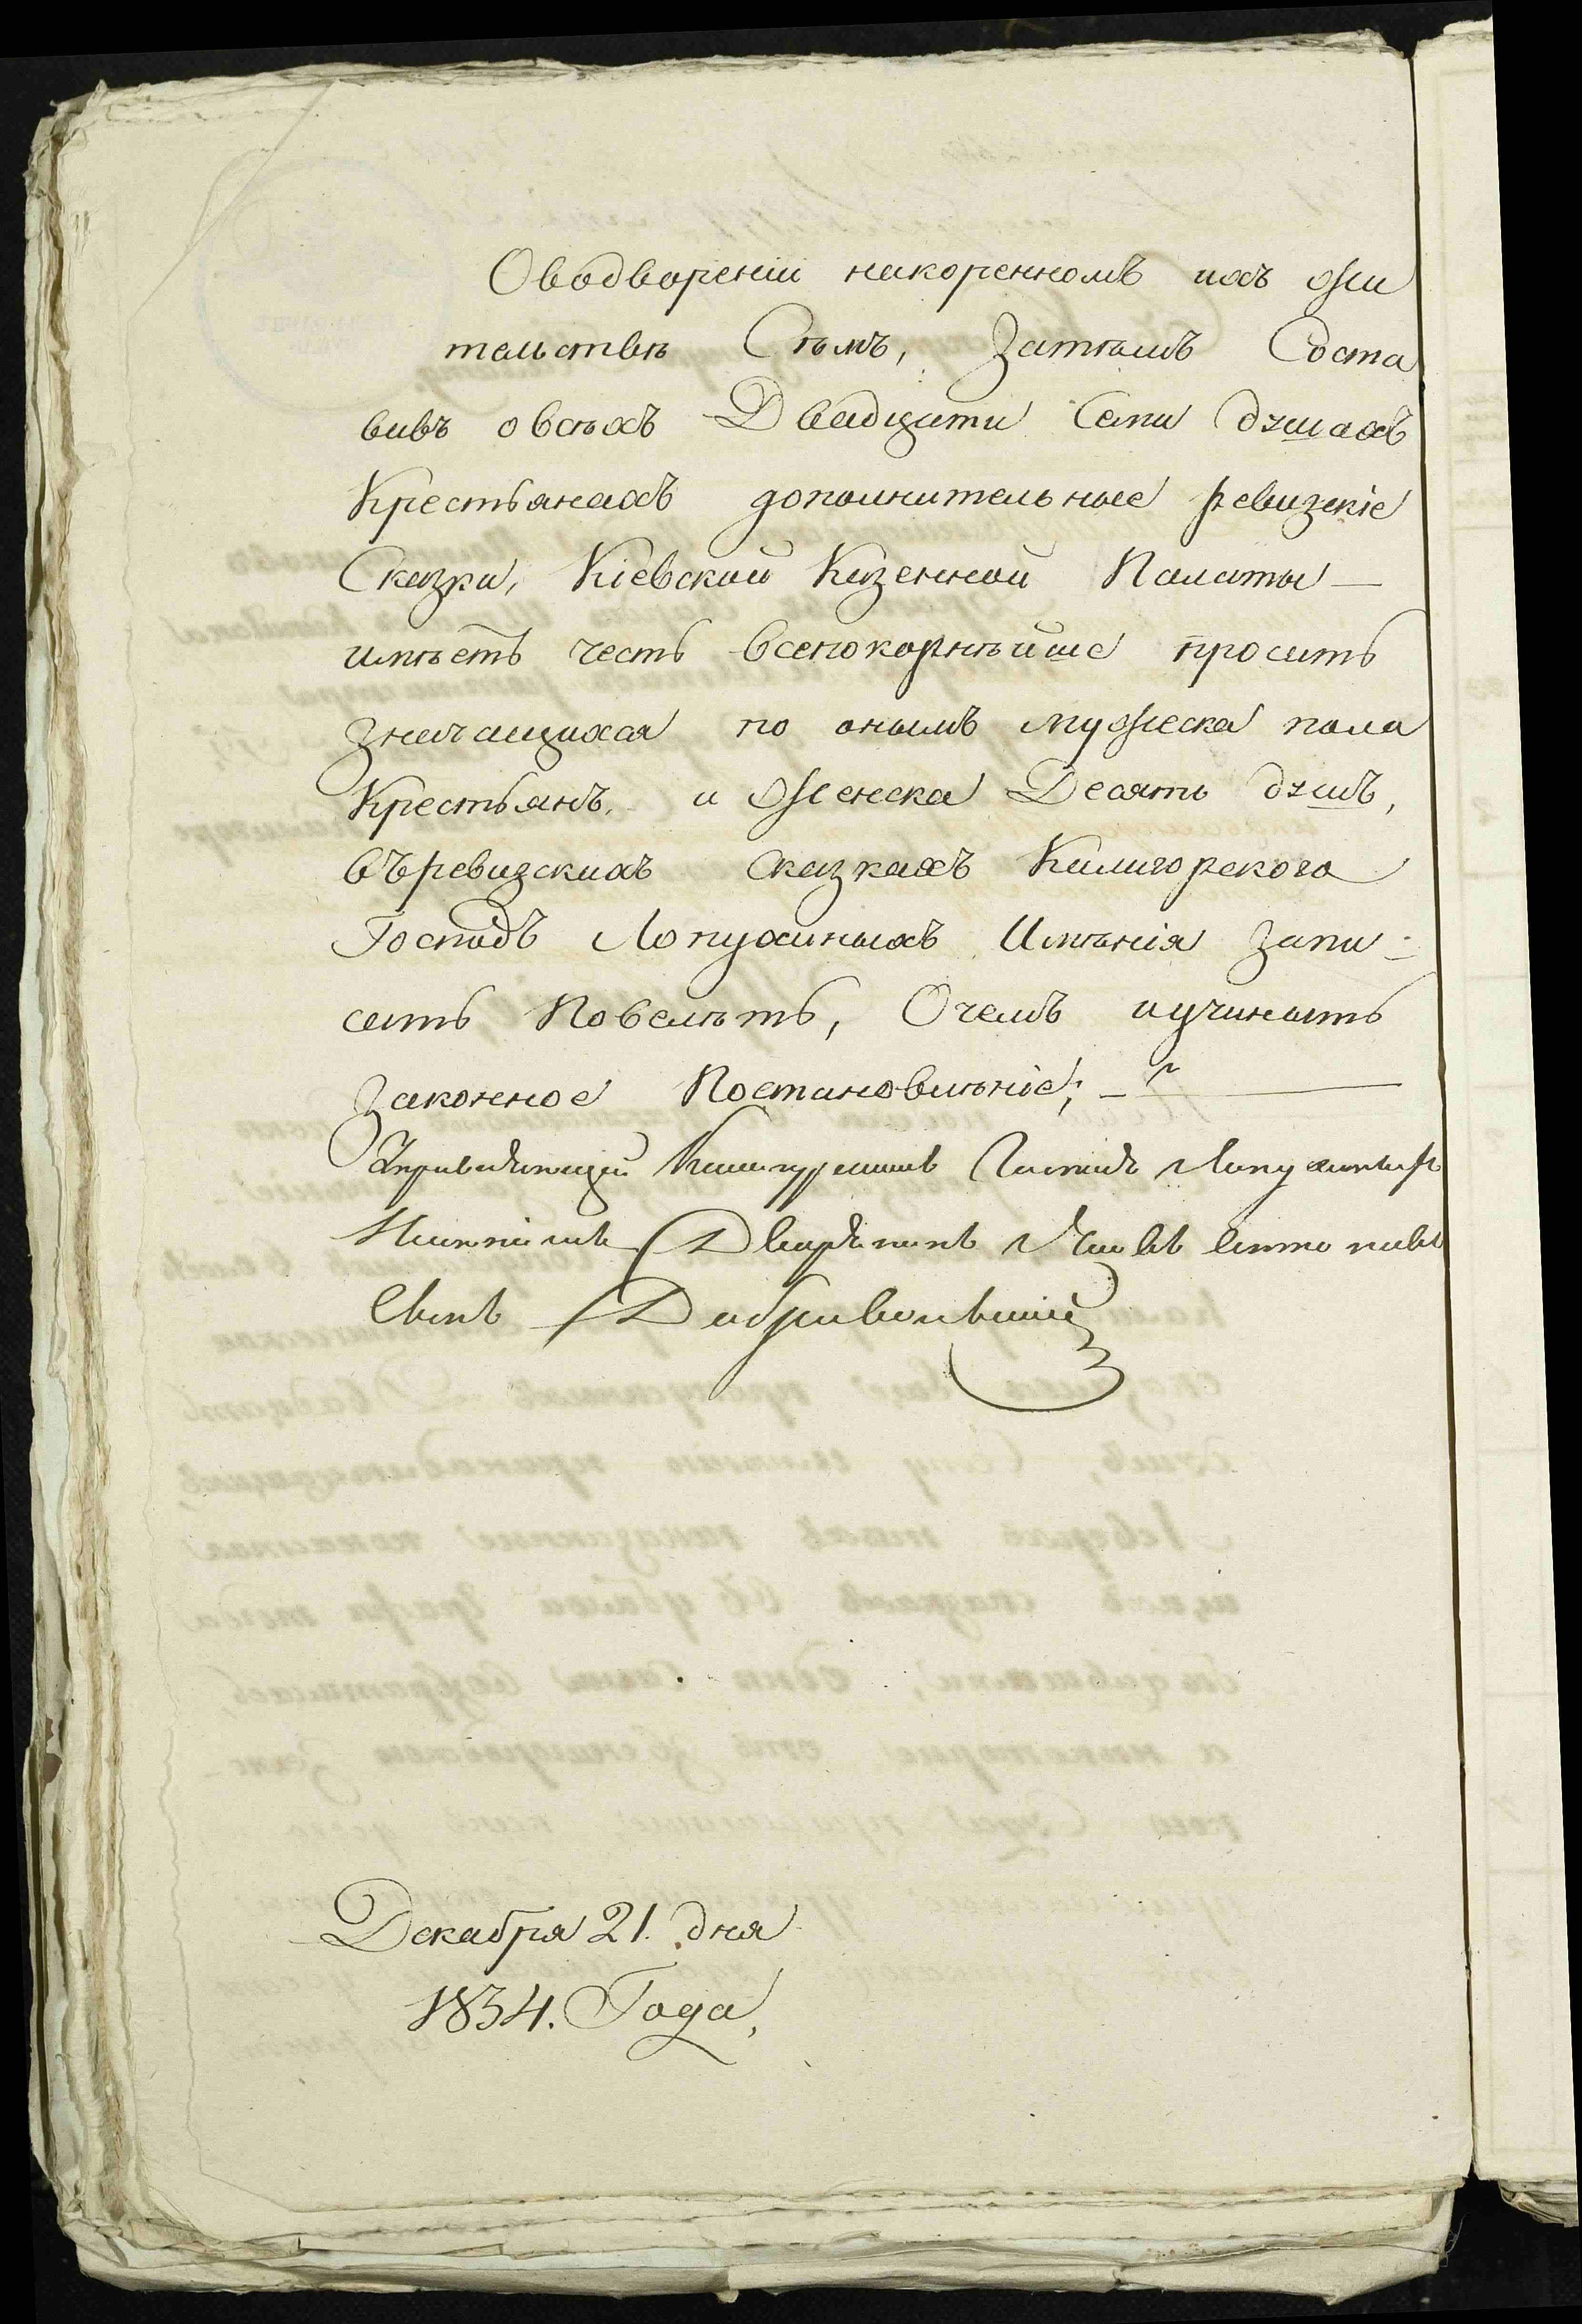 Оводвореніи накоренномъ ихъ жи
тельствѣ Сѣмъ, Затѣмъ Соста
вивъ овсѣхъ Двадцати Семи душахъ
Крестьянахъ дополнительные ревизскіе
Сказки, Кіевской Казенной Палаты —
имѣетъ честь всепокорнѣйше просить
значащихся по онымъ мужеска пола
Крестьянъ, и женска Десять душъ,
въревизскихъ сказкахъ Калигорского
Господъ Лопухиныхъ Имѣнія запи-
сать Повелѣть, Очемъ иучинить
законное Постановлѣніе; —
Управляющій Господъ Лопухиныхъ
Имѣніемъ Дворянинъ
Сынъ Добровольскій
Декабря 21. дня
1834. Года,